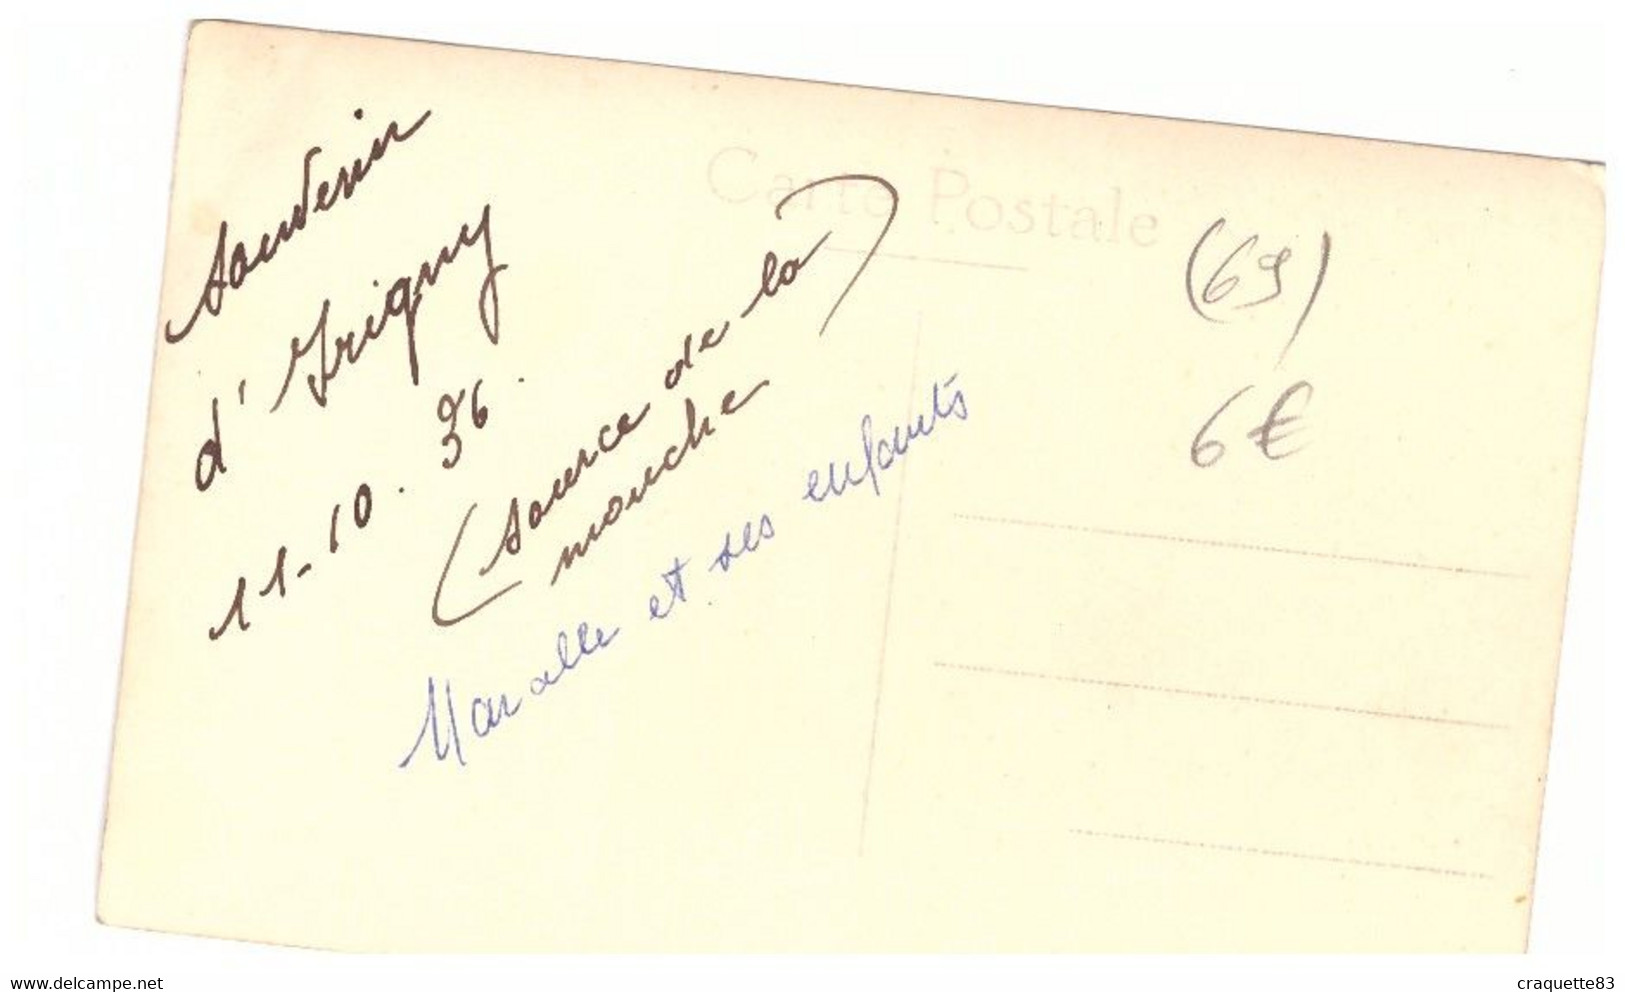 Carte Postale
Souvenir
d'Irigny
11-10.36.
(source de la
mouche)
et ses enfants
(69)
6€
www.delcampe.net
craquette83